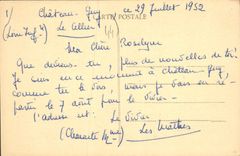 1/ Château-Guy ce 29 Juillet 1952
CARTE POSTALE
Le Cellier
(Loire Inf.)
Ma Chère Roselyne
Que deviens-tu, plus de nouvelles de toi.
Je suis en ce moment à château-Guy,
comme tu le vois, mais je vais en re-
partir le 7 août pour le Vivier
l'adresse est : Le Vivier
Les Mathes
(Charente Mme)